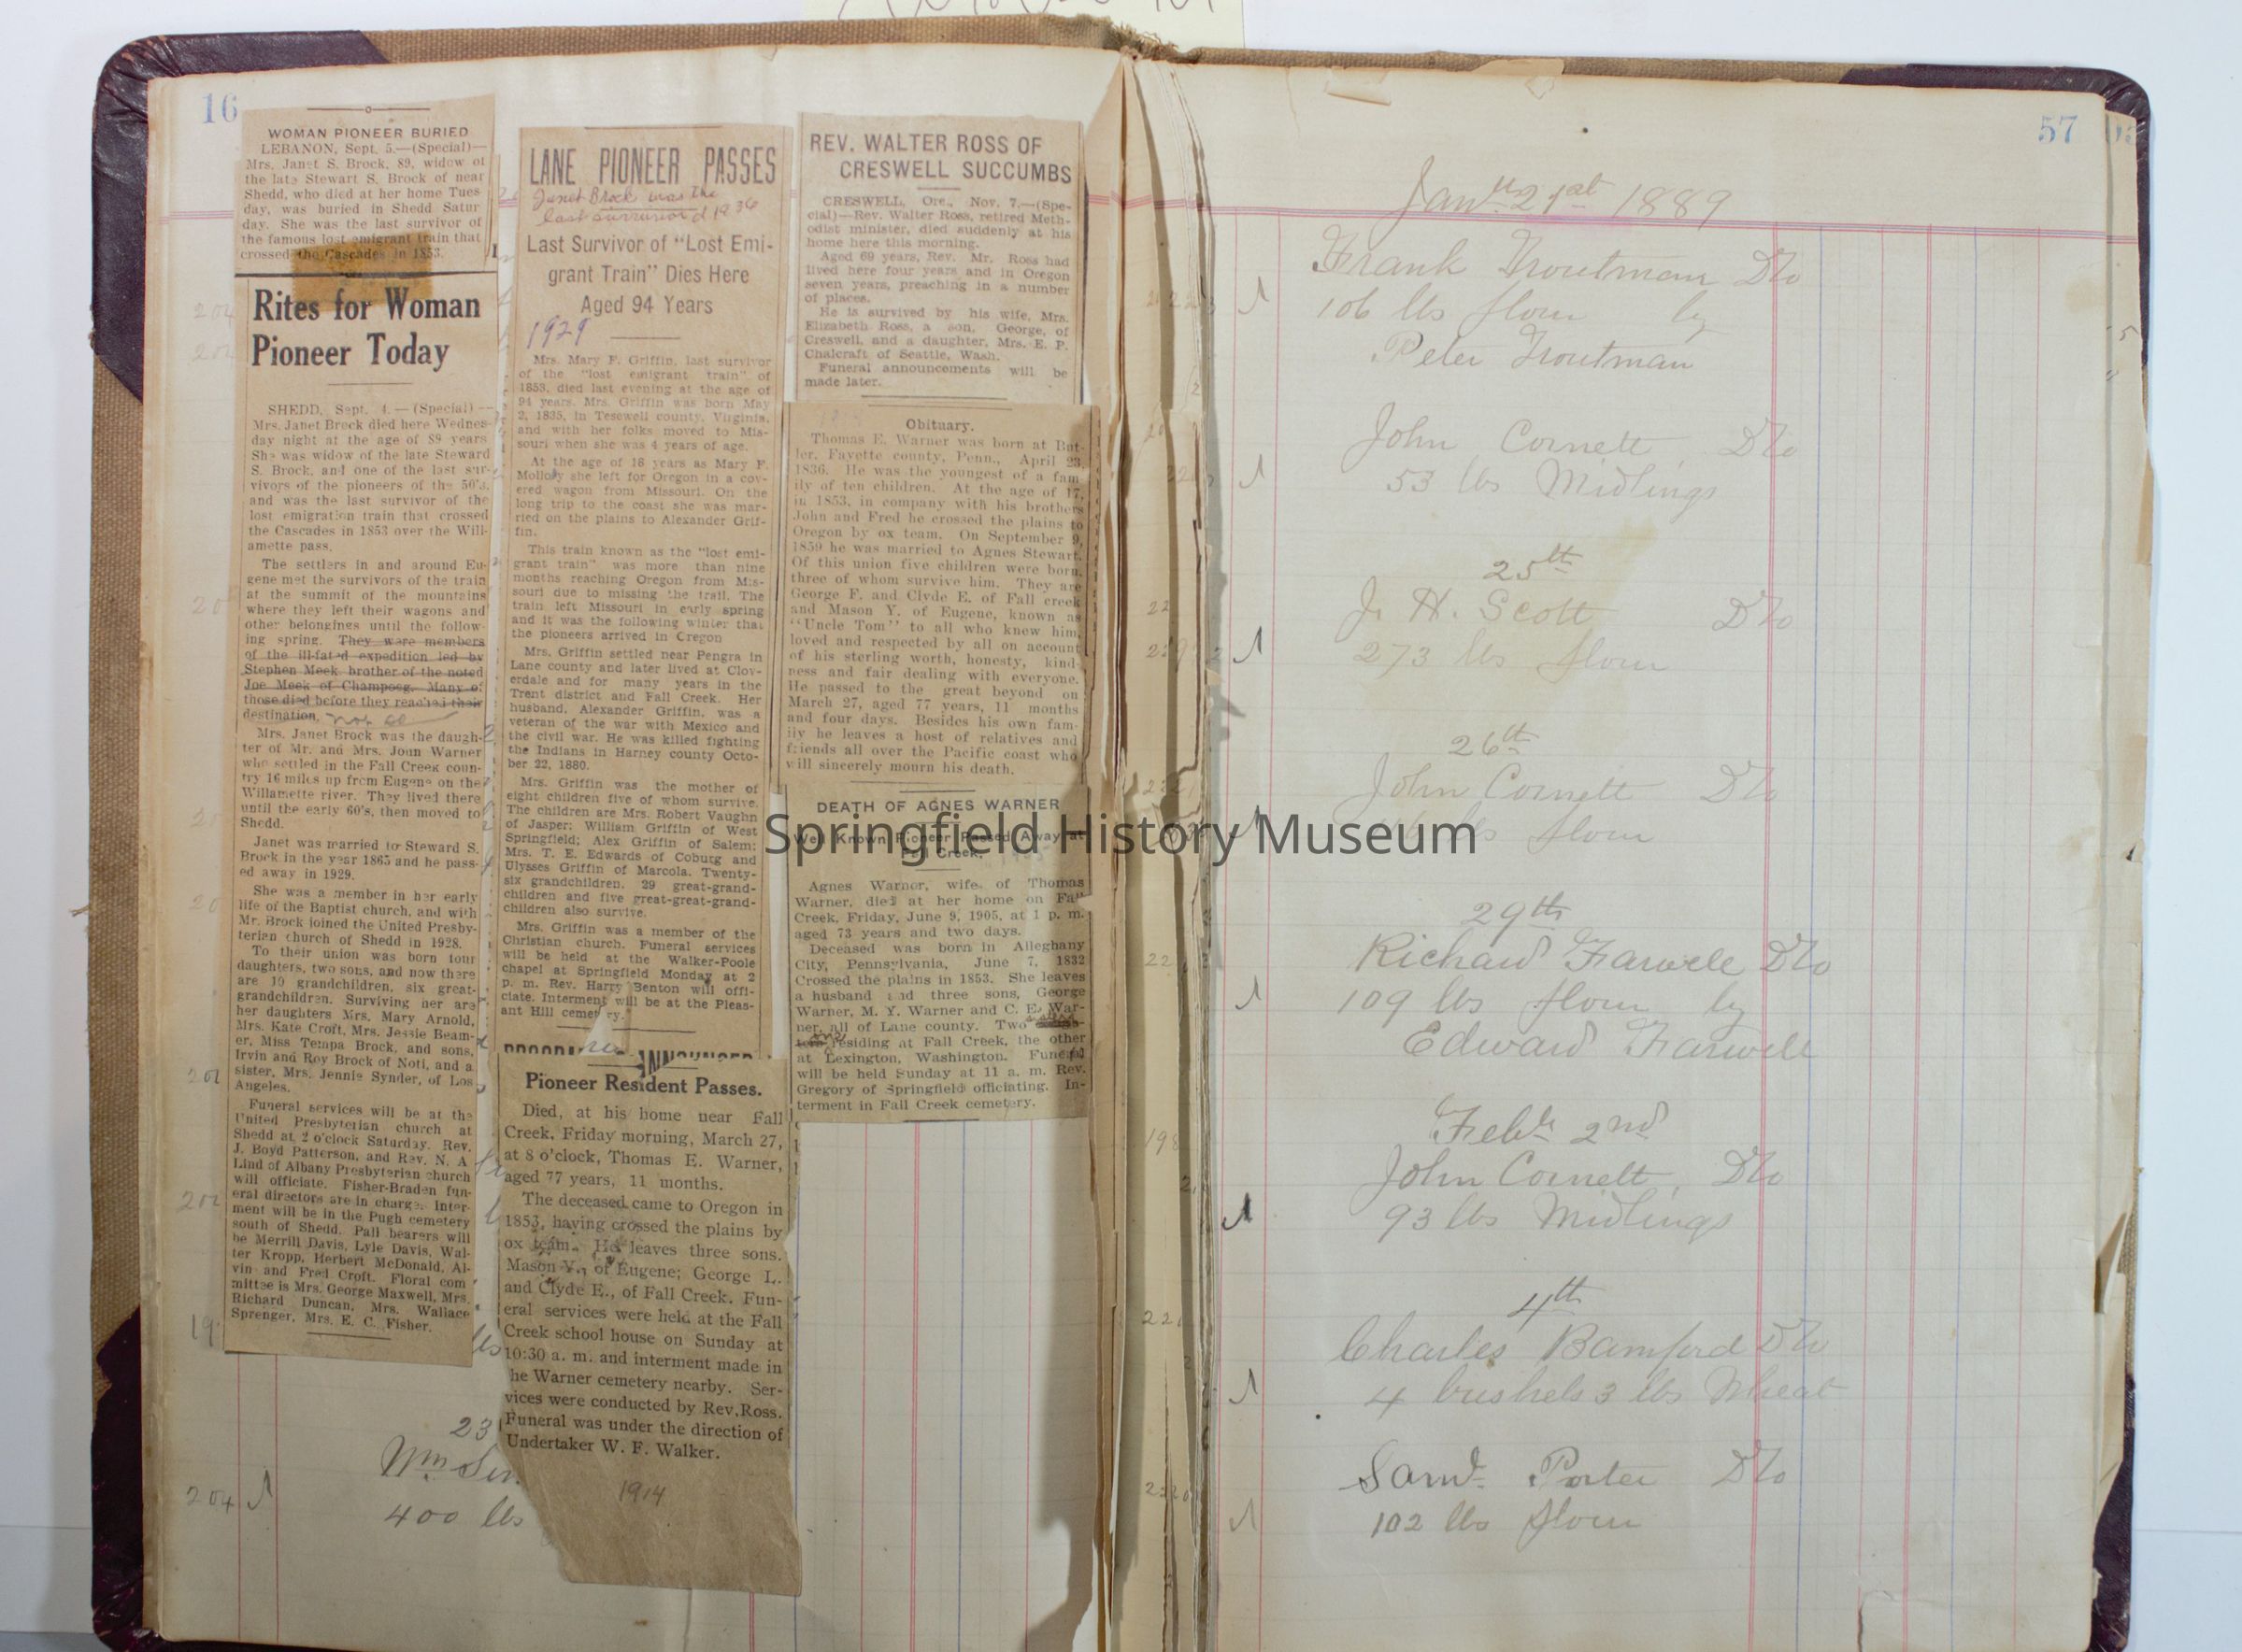 16
WOMAN PIONEER BURIED
LEBANON, Sept. 5.—(Special)—
Mrs. Janet S. Brock, 89, widow of
the late Stewart S. Brock of near
Shedd, who died at her home Tues
day, was buried in Shedd Satur
day. She was the last survivor of
the famous lost emigrant train that
crossed the Cascades in 1853.
Rites for Woman
Pioneer Today
SHEDD, Sept. 4.—(Special)—
Mrs. Janet Brock died here Wednes-
day night at the age of 89 years
She was widow of the late Steward
S. Brock, and one of the last sur-
vivors of the pioneers of the 50's,
and was the last survivor of the
lost emigration train that crossed
the Cascades in 1853 over the Will-
amette pass.
The settlers in and around Eu-
gene met the survivors of the train
at the summit of the mountains
where they left their wagons and
other belongings until the follow-
ing spring. They were members
of the ill-fated expedition led by
Stephen Meek brother of the noted
Joe Meek of Champoeg. Many of
those died before they reached their
destination. not so
Mrs. Janet Brock was the daugh-
ter of Mr. and Mrs. John Warner
who settled in the Fall Creek coun-
try 16 miles up from Eugene on the
Willamette river. They lived there
until the early 60's, then moved to
Shedd.
Janet was married to Steward S.
Brock in the year 1865 and he pass-
ed away in 1929.
She was a member in her early
life of the Baptist church, and with
Mr. Brock joined the United Presby-
terian church of Shedd in 1928.
To their union was born four
daughters, two sons, and now there
are 19 grandchildren, six great-
grandchildren. Surviving her are
her daughters Mrs. Mary Arnold,
Mrs. Kate Croft, Mrs. Jessie Beam-
er, Miss Tempa Brock, and sons,
Irvin and Roy Brock of Noti, and a
sister, Mrs. Jennie Synder, of Los
Angeles.
Funeral services will be at the
United Presbyterian church at
Shedd at 2 o'clock Saturday. Rev.
J. Boyd Patterson, and Rev. N. A
Lind of Albany Presbyterian church
will officiate. Fisher-Braden fun-
eral directors are in charge. Inter-
ment will be in the Pugh cemetery
south of Shedd. Pall bearers will
be Merrill Davis, Lyle Davis, Wal-
ter Kropp, Herbert McDonald, Al-
vin and Fred Croft. Floral com
mittee is Mrs. George Maxwell, Mrs.
Richard Duncan, Mrs. Wallace
Sprenger, Mrs. E. C. Fisher.
23
Wm
204
400 lbs
LANE PIONEER PASSES
Janet Brock was the
last survivor d 1936
Last Survivor of "Lost Emi-
grant Train" Dies Here
Aged 94 Years
1929
Mrs. Mary F. Griffin, last survivor
of the "lost emigrant train" of
1853, died last evening at the age of
94 years. Mrs. Griffin was born May
2, 1835, in Tesewell county, Virginia,
and with her folks moved to Mis-
souri when she was 4 years of age.
At the age of 16 years as Mary F.
Molloy she left for Oregon in a cov-
ered wagon from Missouri. On the
long trip to the coast she was mar-
ried on the plains to Alexander Grif-
fin.
This train known as the "lost emi-
grant train" was more than nine
months reaching Oregon from Mis-
souri due to missing the trail. The
train left Missouri in early spring
and it was the following winter that
the pioneers arrived in Oregon
Mrs. Griffin settled near Pengra in
Lane county and later lived at Clov-
erdale and for many years in the
Trent district and Fall Creek. Her
husband, Alexander Griffin, was a
veteran of the war with Mexico and
the civil war. He was killed fighting
the Indians in Harney county Octo-
ber 22, 1880.
Mrs. Griffin was the mother of
eight children five of whom survive.
The children are Mrs. Robert Vaughn
of Jasper; William Griffin of West
Springfield; Alex Griffin of Salem;
Mrs. T. E. Edwards of Coburg and
Ulysses Griffin of Marcola. Twenty-
six grandchildren, 29 great-grand-
children and five great-great-grand-
children also survive.
Mrs. Griffin was a member of the
Christian church. Funeral services
will be held at the Walker-Poole
chapel at Springfield Monday at 2
p. m. Rev. Harry Benton will offi-
ciate. Interment will be at the Pleas-
ant Hill cemetery.
Pioneer Resident Passes.
Died, at his home near Fall
Creek, Friday morning, March 27,
at 8 o'clock, Thomas E. Warner,
aged 77 years, 11 months.
The deceased came to Oregon in
1853, having crossed the plains by
ox team. He leaves three sons.
Mason Y., of Eugene; George L.
and Clyde E., of Fall Creek. Fun-
eral services were held at the Fall
Creek school house on Sunday at
10:30 a. m. and interment made in
he Warner cemetery nearby. Ser-
vices were conducted by Rev. Ross.
Funeral was under the direction of
Undertaker W. F. Walker.
1914
REV. WALTER ROSS OF
CRESWELL SUCCUMBS
CRESWELL, Ore., Nov. 7.—(Spe-
cial)—Rev. Walter Ross, retired Meth-
odist minister, died suddenly at his
home here this morning.
Aged 69 years, Rev. Mr. Ross had
lived here four years and in Oregon
seven years, preaching in a number
of places.
He is survived by his wife, Mrs.
Elizabeth Ross, a son, George, of
Creswell, and a daughter, Mrs. E. P.
Chalcraft of Seattle, Wash.
Funeral announcements will be
made later.
Obituary.
Thomas E. Warner was born at But-
ler, Fayette county, Penn., April 23,
1836. He was the youngest of a fam
ily of ten children. At the age of 17,
in 1853, in company with his brothers
John and Fred he crossed the plains to
Oregon by ox team. On September 9,
1859 he was married to Agnes Stewart.
Of this union five children were born,
three of whom survive him. They are
George F. and Clyde E. of Fall creek
and Mason Y. of Eugene, known as
"Uncle Tom" to all who knew him,
loved and respected by all on account
of his sterling worth, honesty, kind-
ness and fair dealing with everyone.
He passed to the great beyond on
March 27, aged 77 years, 11 months
and four days. Besides his own fam-
ily he leaves a host of relatives and
friends all over the Pacific coast who
will sincerely mourn his death.
DEATH OF AGNES WARNER
Well Known Pioneer Passed Away at
Fall Creek.
Agnes Warner, wife of Thomas
Warner, died at her home on Fall
Creek, Friday, June 9, 1905, at 1 p. m.
aged 73 years and two days.
Deceased was born in Alleghany
City, Pennsylvania, June 7, 1832
Crossed the plains in 1853. She leaves
a husband and three sons, George
Warner, M. Y. Warner and C. E. War-
ner, all of Lane county. Two sisters
one residing at Fall Creek, the other
at Lexington, Washington. Funeral
will be held Sunday at 11 a. m. Rev.
Gregory of Springfield officiating. In-
terment in Fall Creek cemetery.
Springfield History Museum
57
Jany 21st 1889
Frank Troutman Dto
106 lbs flour by
Peter Troutman
John Cornett Dto
53 lbs Midlings
25th
J. H. Scott Dto
273 lbs flour
26th
John Cornett Dto
lbs flour
29th
Richard Farwell Dto
109 lbs flour by
Edward Farwell
Feby 2nd
John Cornett, Dto
93 lbs Midlings
4th
Charles Bamford Dto
4 bushels 3 lbs Wheat
Saml Porter Dto
102 lbs flour